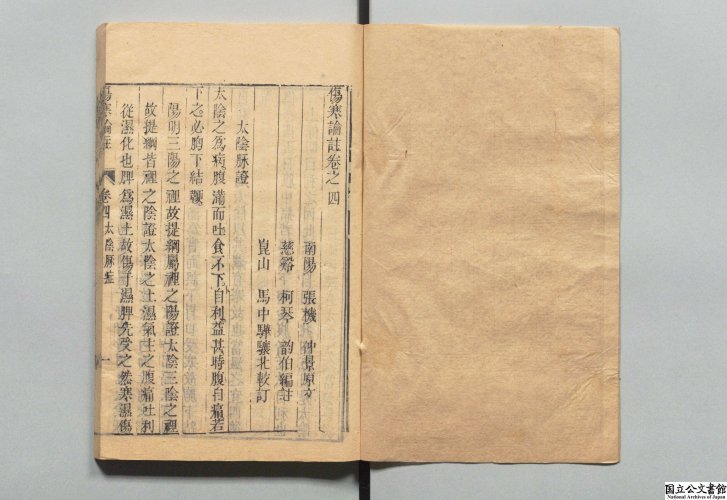 傷寒論註卷之四
南陽 張機 仲景原文
慈谿 柯琴 韵伯編註
崑山 馬中驊驤北較訂
太陰脉證
太陰之為病腹滿而吐食不下自利益甚時腹自痛若
下之必胸下結鞕
陽明三陽之裡故提綱屬裡之陽證太陰三陰之裡
故提綱皆裡之陰證太陰之上濕氣主之腹痛吐利
從濕化也脾為濕土故傷于濕脾先受之然寒濕傷
傷寒論註 卷四 太陰脉證 一
国立公文書館
National Archives of Japan